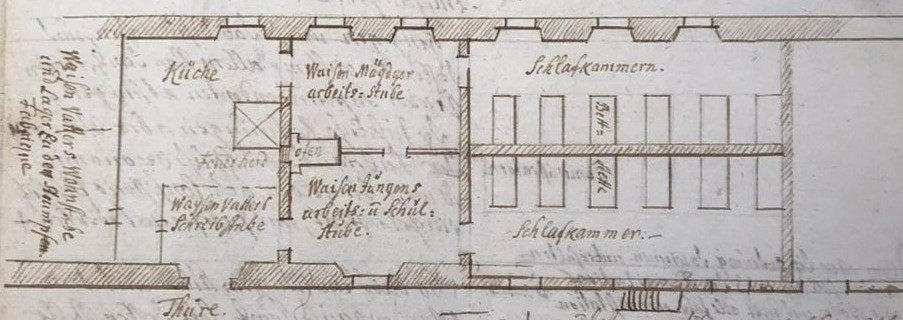 Waisen Vatters Wohnstube
und Lager zu den Strumpfen.
Fabrique
Küche
Feüerherd
Waÿsen Vatters
Schreib stube
Waisen Mägdger
arbeits-Stube
ofen
Waisen Jungens
arbeits- ū Schul-
stube.
Schlafkammern.
Bett-
stette
Schlafkammer:-
Thüre.